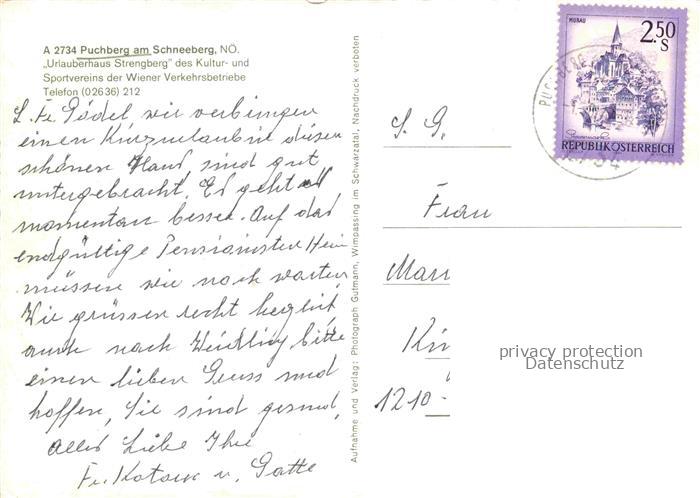 A 2734 Puchberg am Schneeberg, NÖ.
„Urlauberhaus Strengberg" des Kultur- und
Sportvereins der Wiener Verkehrsbetriebe
Telefon (0 26 36) 212
L. Fr. Gödel wir verbringen
einen Kurzurlaub in diesen
schönen Haus sind gut
untergebracht. Es geht
momentan besser. Auf das
endgültige Pensionisten Heim
müssen wir noch warten
Wir grüssen recht herzlich
auch nach Weidling bitte
einen lieben Gruss und
hoffen, Sie sind gesund,
alles Liebe Ihre
Fr. Kotauc u. Gatte
Aufnahme und Verlag: Photograph Gutmann, Wimpassing im Schwarzatal, Nachdruck verboten
MURAU
2.50
S
REPUBLIK ÖSTERREICH
S. G.
Frau
1210-
privacy protection
Datenschutz